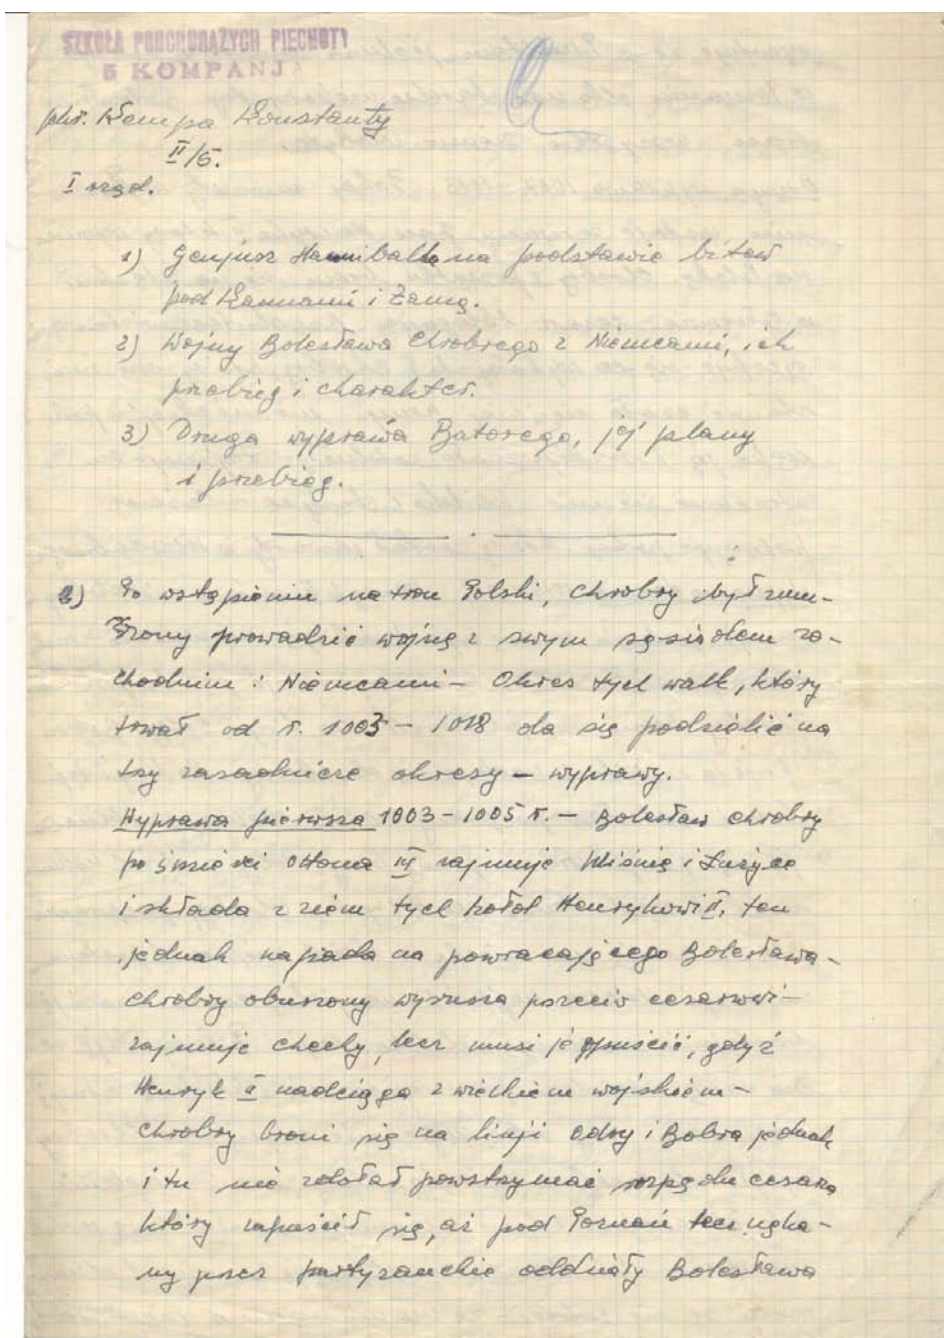 SZKOŁA PODCHORĄŻYCH PIECHOTY
5 KOMPANJA
pchr. Kempa Konstanty
II/5.
I rząd.
1) Genjusz Hannibala na podstawie bitew
pod Kannami i Zamą.
2) Wojny Bolesława Chrobrego z Niemcami, ich
przebieg i charakter.
3) Druga wyprawa Batorego, jej plany
i przebieg.
2) Po wstąpieniu na tron Polski, Chrobry był zmu-
szony prowadzić wojnę z swym sąsiadem za-
chodnim: Niemcami – Okres tych walk, który
trwał od r. 1003 – 1018 da się podzielić na
trzy zasadnicze okresy – wyprawy.
Wyprawa pierwsza 1003 – 1005 r. – Bolesław Chrobry
po śmierci Ottona III zajmuje Miśnię i Łużyce
i składa z ziem tych hołd Henrykowi II, ten
jednak napada na powracającego Bolesława –
Chrobry oburzony wyrusza przeciw cesarzowi –
zajmuje Czechy, lecz musi je opuścić, gdyż
Henryk II nadciąga z wielkiem wojskiem –
Chrobry broni się na linji Odry i Bobra jednak
i tu nie zdołał powstrzymać rozpędu cesarza
który zapuścił się, aż pod Poznań lecz nęka-
ny przez partyzanckie oddziały Bolesława